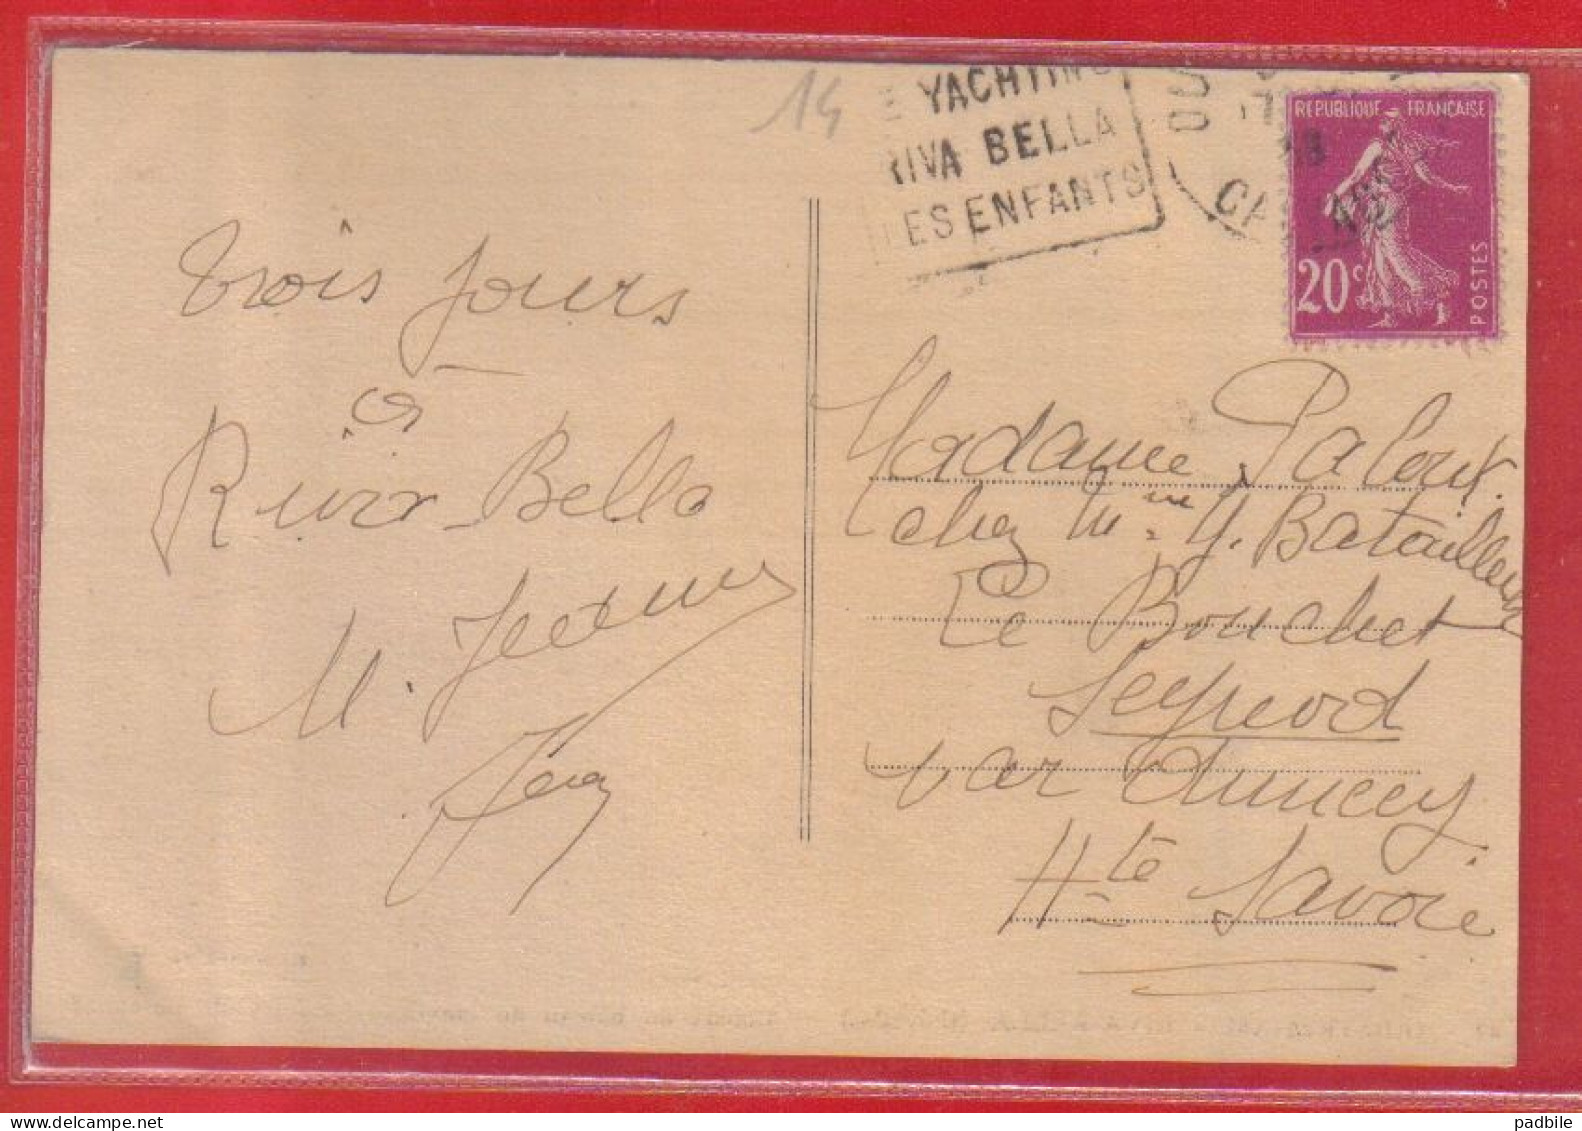 14
YACHTING
RIVA BELLA
DES ENFANTS
REPUBLIQUE FRANÇAISE
20c
POSTES
Trois jours
à
Riva-Bella
M.
Madame
chez Mme
Le Bouchet
Seynod
par Annecy
Hte Savoie
padbile